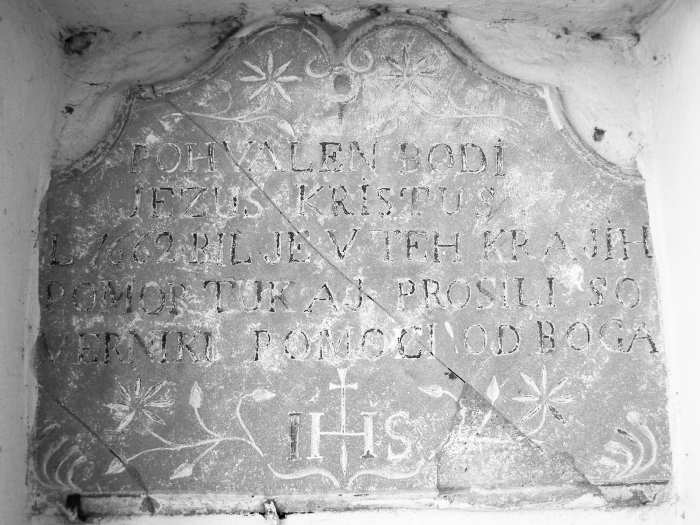 POHVALEN BODI
JEZUS KRISTUS
L 1662 BIL JE V TEH KRAJIH
POMOR TUKAJ PROSILI SO
VERNIKI POMOČI OD BOGA
IHS